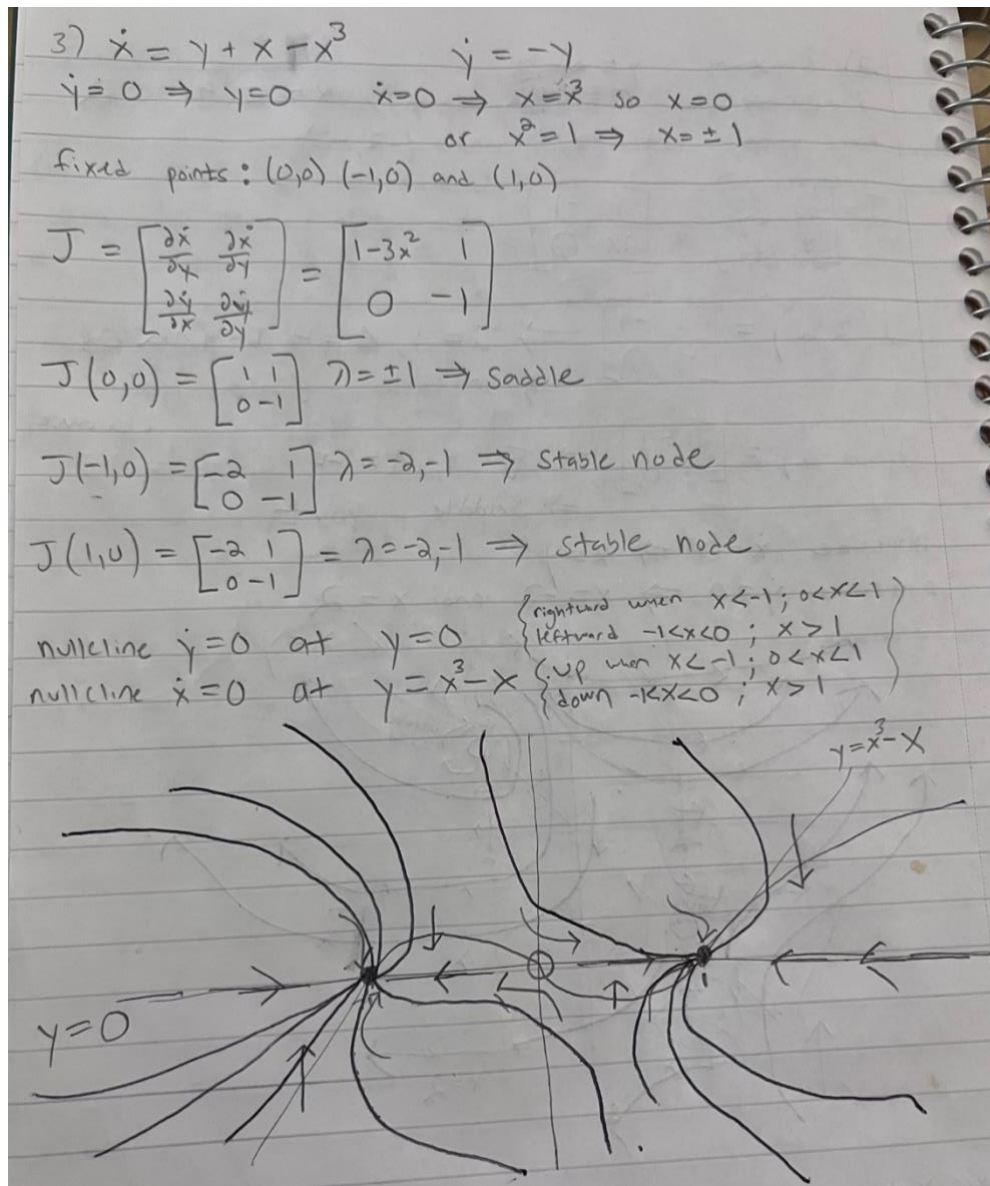 3) ẋ = y + x - x³    ẏ = -y
ẏ = 0 ⇒ y=0    ẋ=0 ⇒ x=x³ so x=0
or x²=1 ⇒ x=±1
fixed points: (0,0) (-1,0) and (1,0)
J = [∂ẋ/∂x ∂ẋ/∂y; ∂ẏ/∂x ∂ẏ/∂y] = [1-3x² 1; 0 -1]
J(0,0) = [1 1; 0 -1] λ=±1 ⇒ saddle
J(-1,0) = [-2 1; 0 -1] λ=-2,-1 ⇒ stable node
J(1,0) = [-2 1; 0 -1] = λ=-2,-1 ⇒ stable node
{rightward when x<-1; 0<x<1
nullcline ẏ=0 at y=0 {leftward -1<x<0; x>1
nullcline ẋ=0 at y=x³-x {up when x<-1; 0<x<1
{down -1<x<0; x>1
y=x³-x
1
y=0